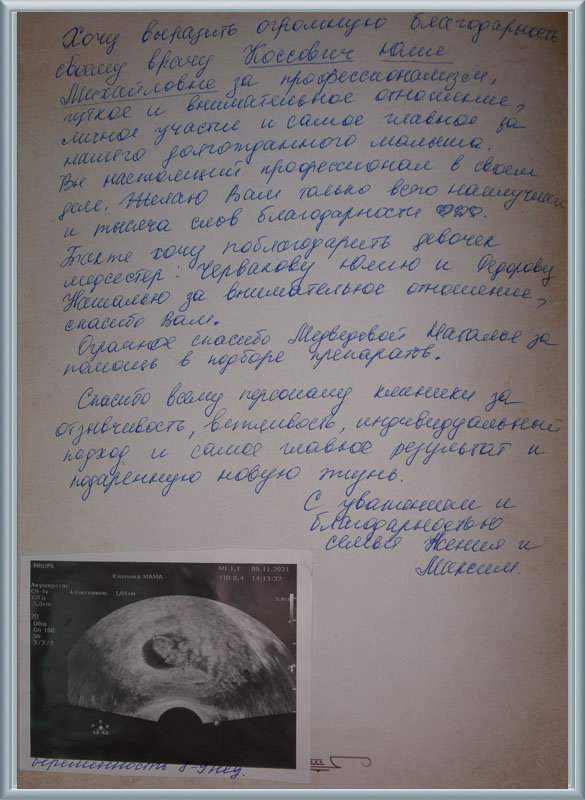 Хочу выразить огромную благодарность
своему врачу Коссович Юлие
Михайловне за профессионализм,
чуткое и внимательное отношение,
личное участие и самое главное за
нашего долгожданного малыша.
Вы настоящий профессионал в своем
деле. Желаю Вам только всего наилучшего
и тысяча слов благодарности
Также хочу поблагодарить девочек
медсестер: Червакову Юлию и Федорову
Наталью за внимательное отношение,
спасибо Вам.
Огромное спасибо Медведевой Наталье за
помощь в подборе препаратов.
Спасибо всему персоналу клиники за
отзывчивость, вежливость, индивидуальный
подход и самое главное результат и
подаренную новую жизнь.
С уважением и
благодарностью
семья Ксения и
Максим.
PHILIPS
MI 1,1 09.11.2021
Клиника МАМА
TIB 0,4 14:13:32
Акушерство
C9 4v
72Гц
5,0см
+ Расстояние 1,84 см
2D
Общ
Gn 100
56
3/3/2
беременность 8-9 нед.